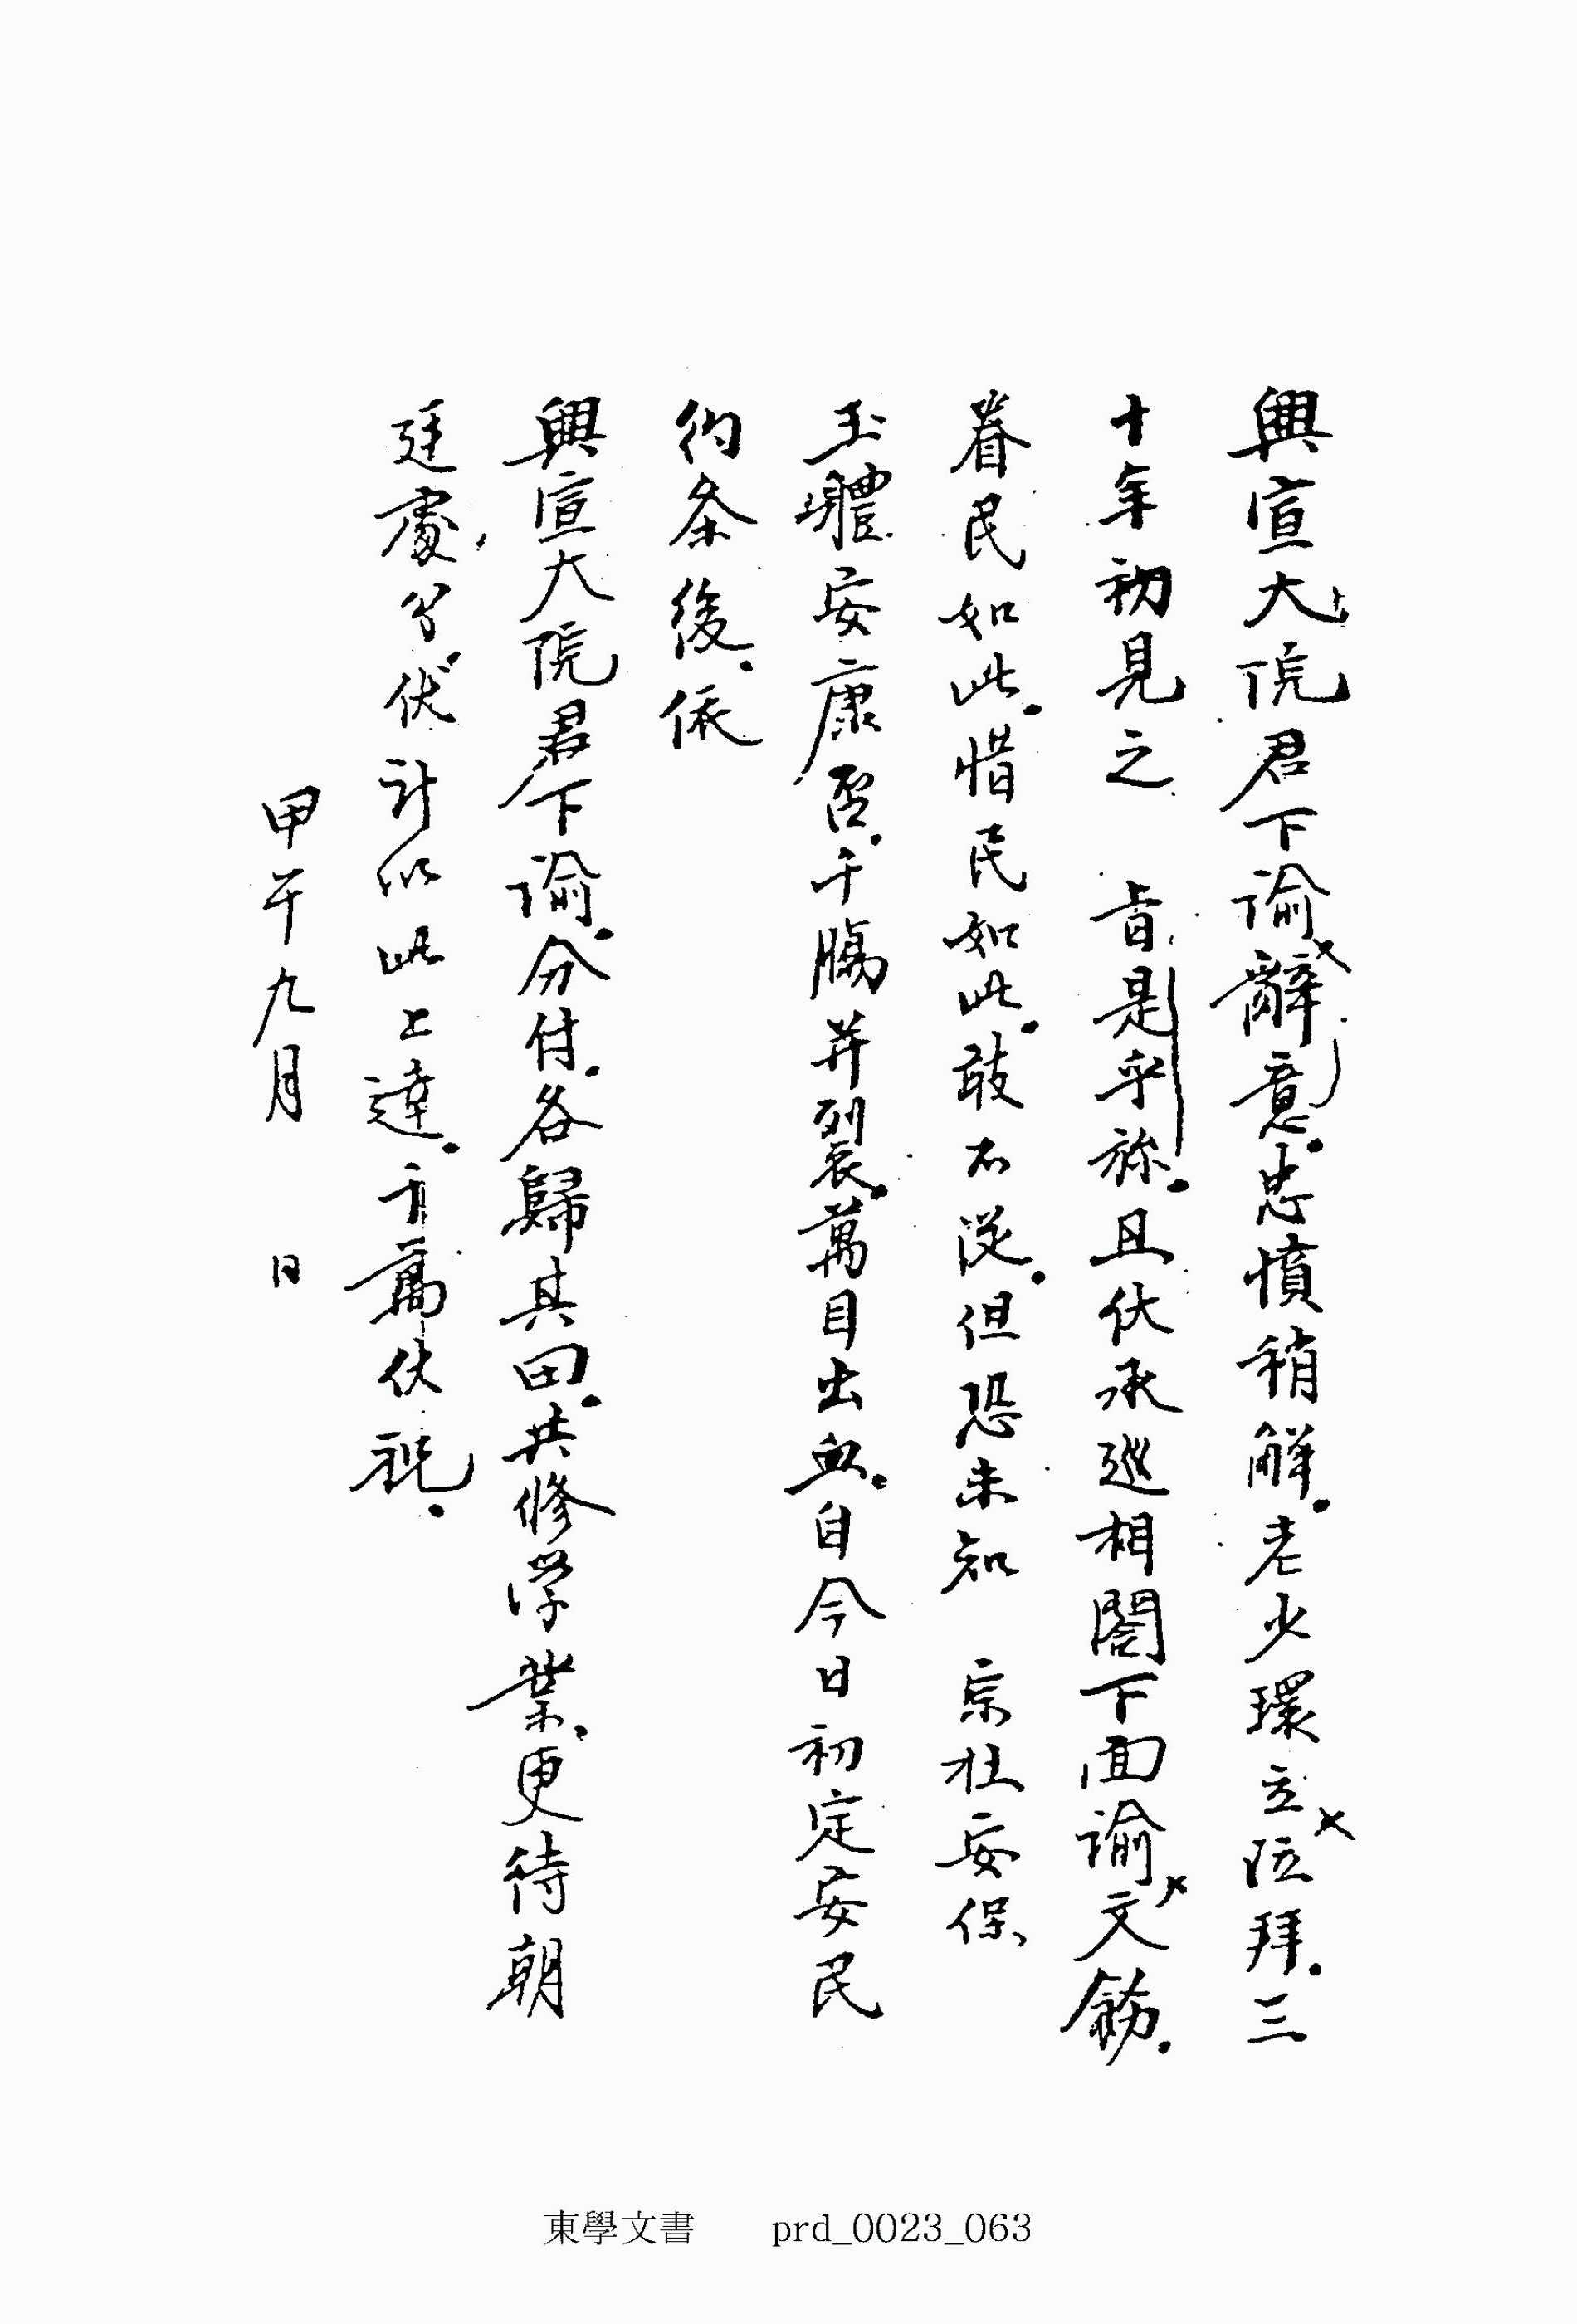 興宣大院君下諭辭意.忠憤稍解.老少環立泣拜.三
十年初見之 旨是乎旀.且伏承巡相閤下面諭文飭.
眷民如此.惜民如此.敢不從.但恐未知 宗社安保
玉體安康否.千膓幷裂.萬目出血.自今日初定安民
約条後.依
興宣大院君下諭.分付.各歸其田.共修学業.更待朝
廷處分.伏計以此上達.千萬伏祝.
甲午九月 日
東學文書 prd_0023_063